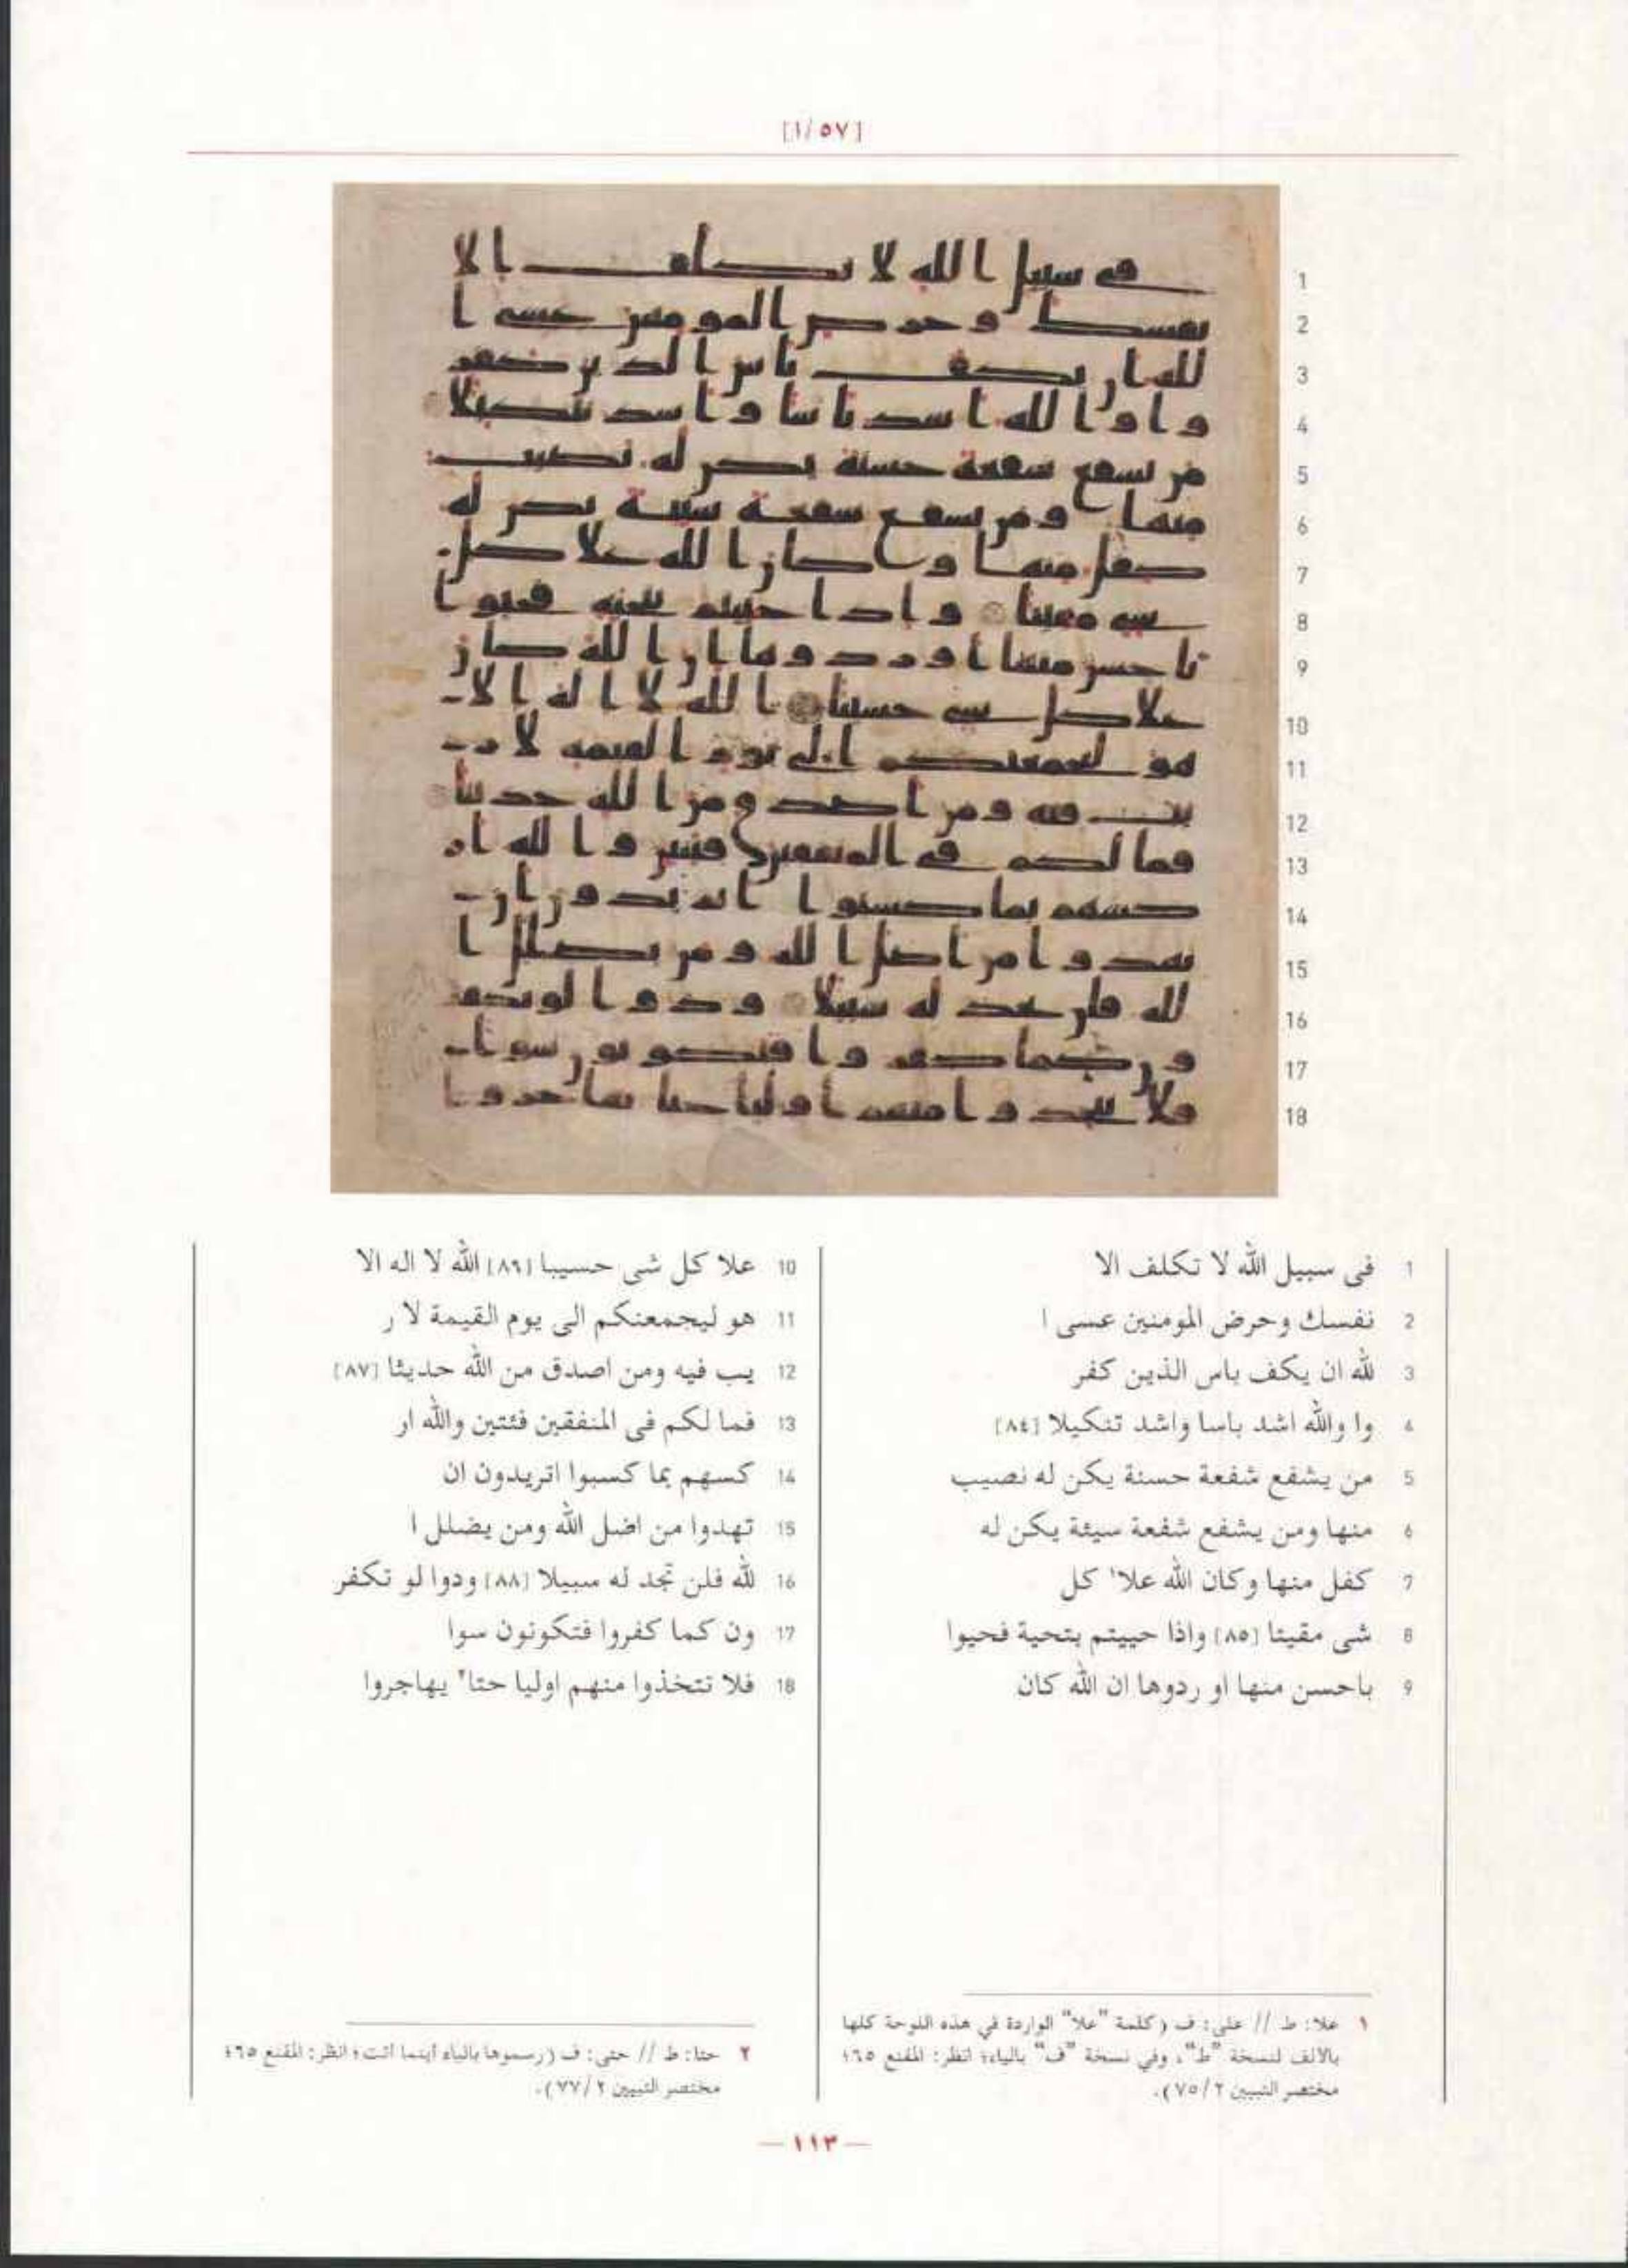 [١/٥٧]
1
2
3
4
5
6
7
8
9
10
11
12
13
14
15
16
17
18
1 فى سبيل الله لا تكلف الا
2 نفسك وحرض المومنين عسى ا
3 لله ان يكف باس الذين كفر
4 وا والله اشد باسا واشد تنكيلا [٨٤]
5 من يشفع شفعة حسنة يكن له نصيب
6 منها ومن يشفع شفعة سيئة يكن له
7 كفل منها وكان الله علا١ كل
8 شى مقيتا [٨٥] واذا حييتم بتحية فحيوا
9 باحسن منها او ردوها ان الله كان
10 علا كل شى حسيبا [٨٦] الله لا اله الا
11 هو ليجمعنكم الى يوم القيمة لا ر
12 يب فيه ومن اصدق من الله حديثا [٨٧]
13 فما لكم فى المنفقين فئتين والله ار
14 كسهم بما كسبوا اتريدون ان
15 تهدوا من اضل الله ومن يضلل ا
16 لله فلن تجد له سبيلا [٨٨] ودوا لو تكفر
17 ون كما كفروا فتكونون سوا
18 فلا تتخذوا منهم اوليا حتا٢ يهاجروا
١ علا: ط // على: ف (كلمة "علا" الواردة في هذه اللوحة كلها
بالالف لنسخة "ط"، وفي نسخة "ف" بالياء؛ انظر: المقنع ٦٥؛
مختصر التبيين ٧٥/٢).
٢ حتا: ط // حتى: ف (رسموها بالياء أينما أتت؛ انظر: المقنع ٦٥؛
مختصر التبيين ٧٧/٢).
— ١١٣ —